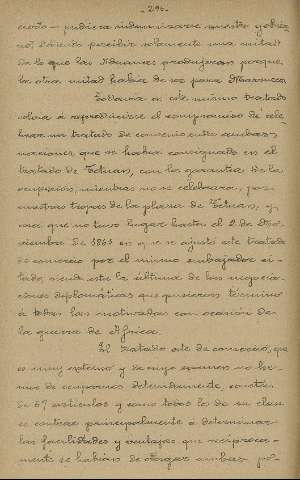 - 296 -
cierto - pudiera indemnizarse nuestro gobier-
no, debiendo percibir solamente una mitad
de lo que las Aduanas produjesen porque
la otra mitad habia de ser para Marruecos
Todavia en este mismo tratado
volvia á reproducirse el compromiso de cele-
brar un tratado de comercio entre ambas
naciones que se habia consignado en el
tratado de Tetuan, con la garantia de la
ocupacion, mientras no se celebrara, por
nuestras tropas de la plaza de Tetuan, y
veve que no tuvo lugar hasta el 2 de No-
viembre de 1861 en q. se se ajustó este tratado
de comercio por el mismo embajador ci-
tado, siendo este la última de las negocia-
ciones diplomáticas que pusieron término
á todas las motivadas con ocasión de
la guerra de Africa.
El tratado este de comercio, que
es muy extenso y de cuyo examen no he-
mos de ocuparnos detenidamente, consta
de 67 artículos y como todos los de su clase
se contrae principalmente á determinar
las facilidades y ventajas que reciproca-
mente se habian de otorgar ambas po-